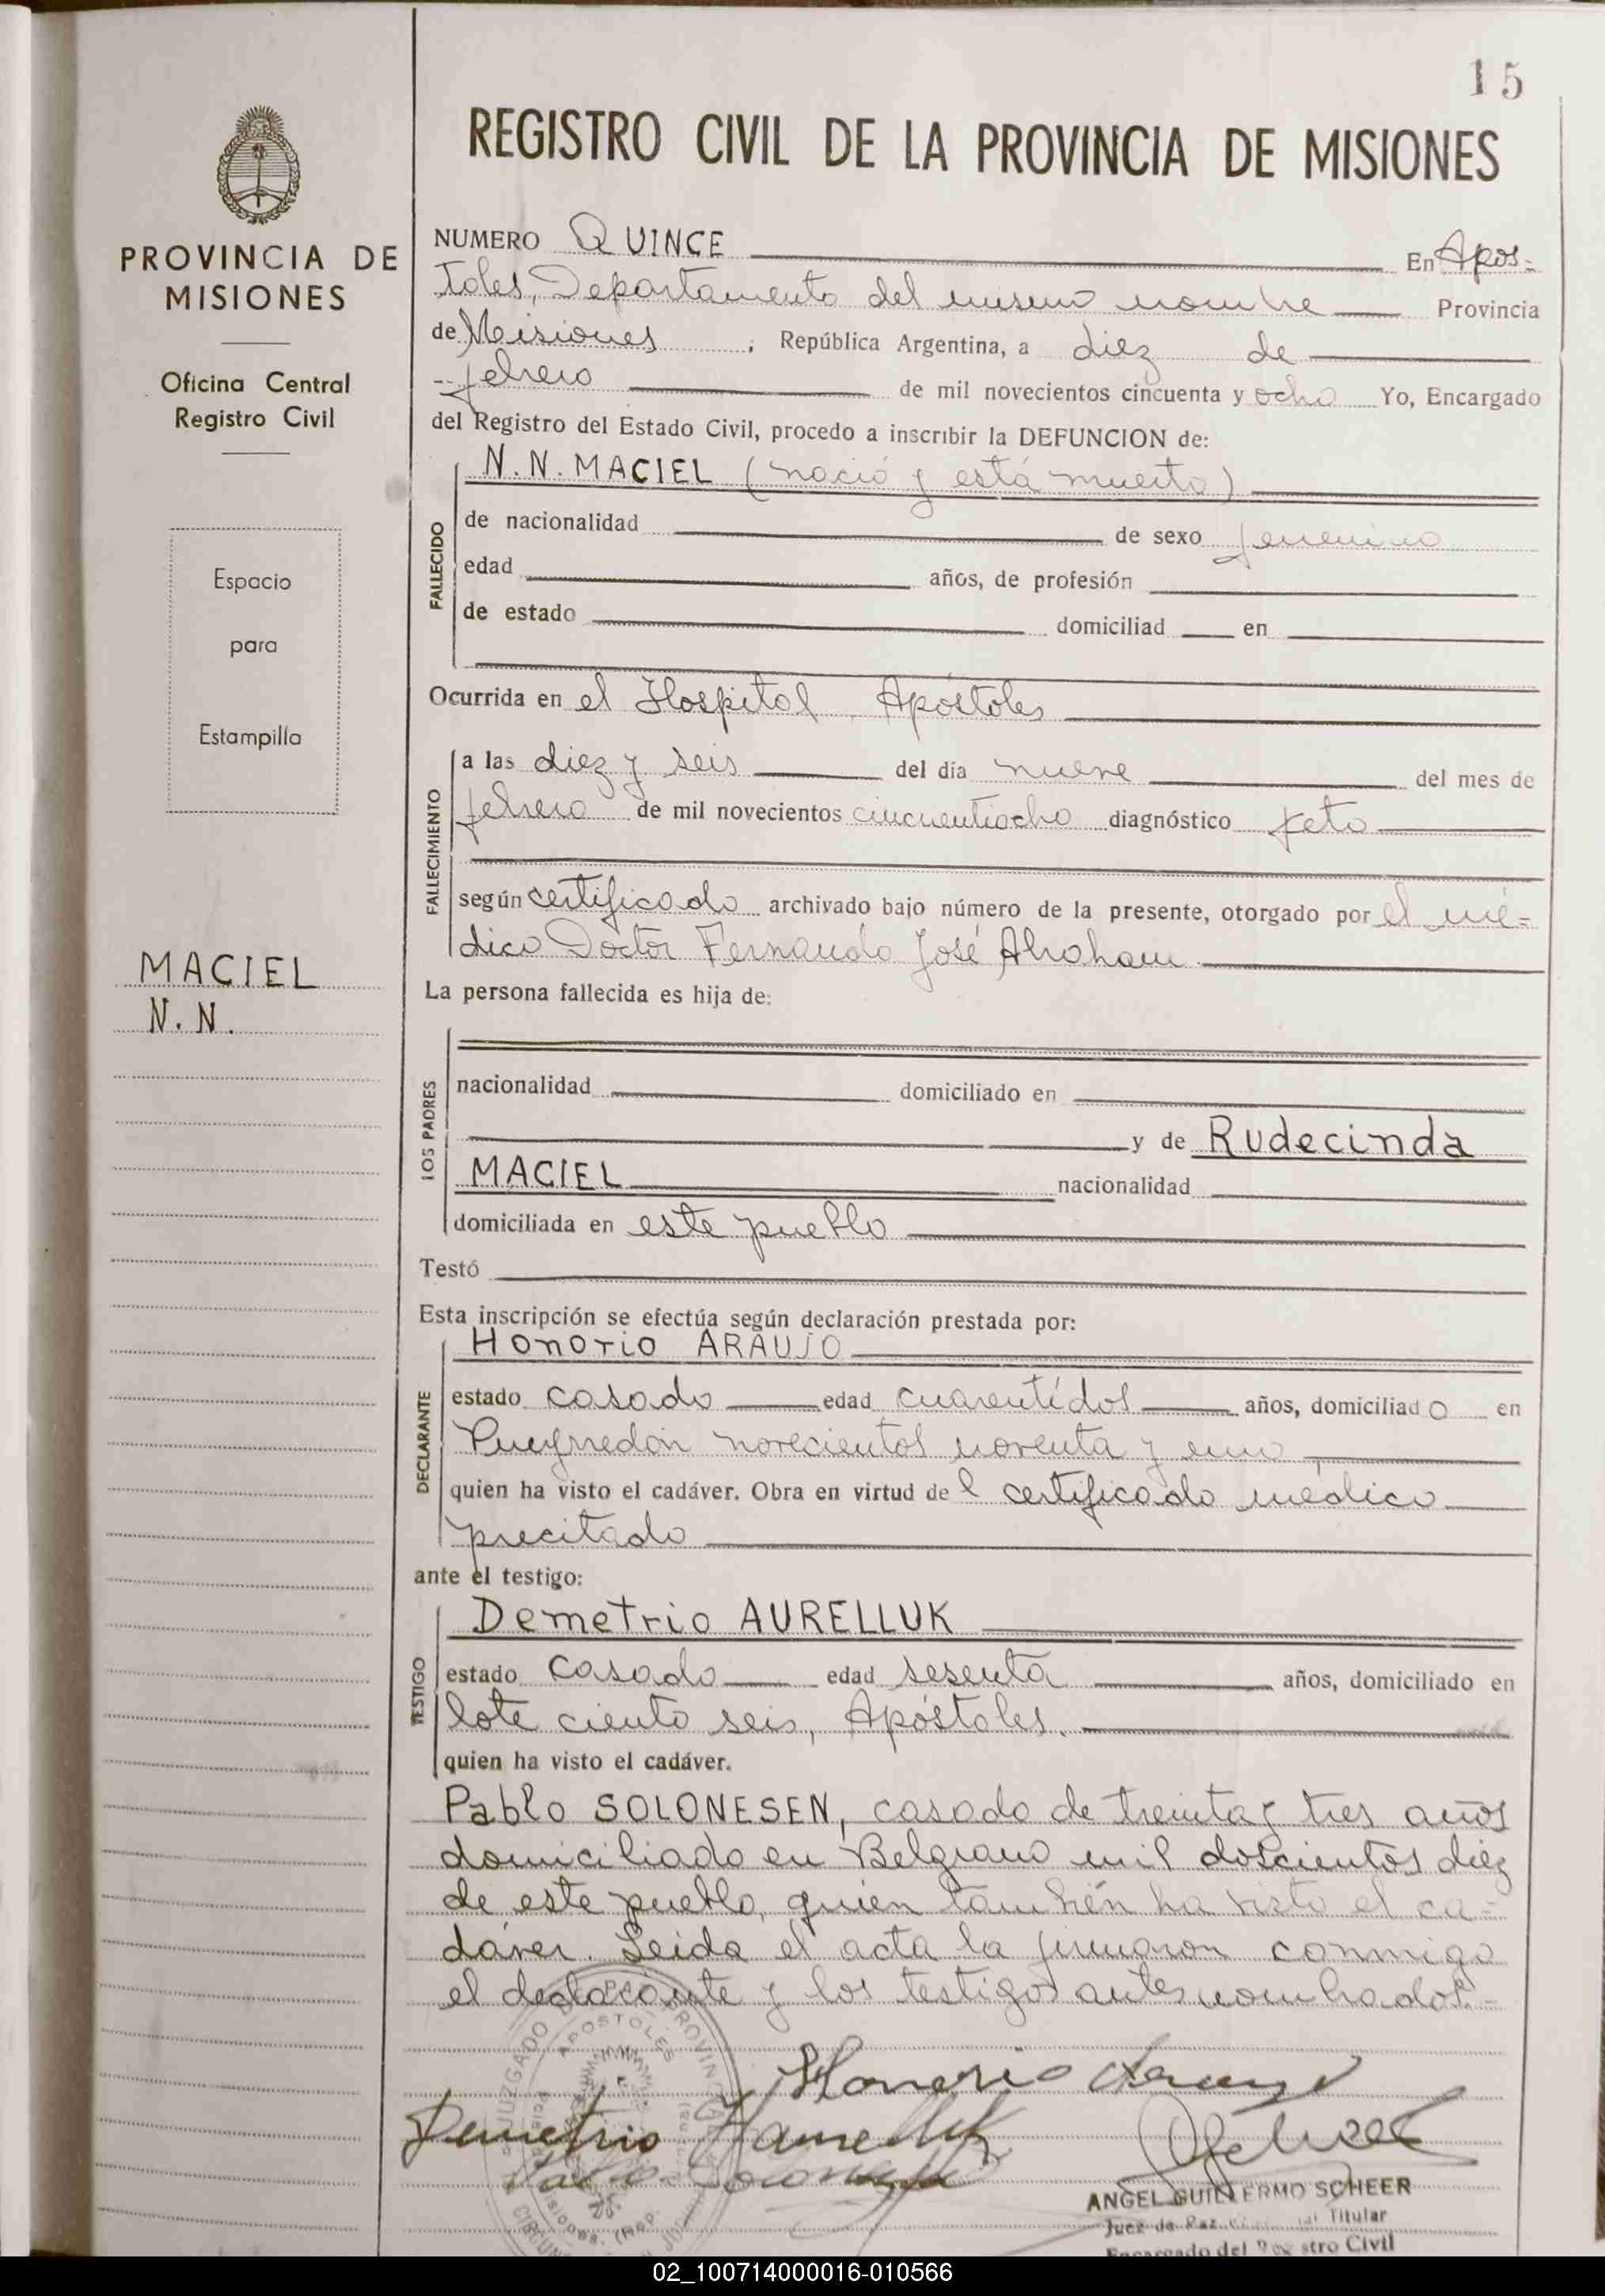 15
REGISTRO CIVIL DE LA PROVINCIA DE MISIONES
PROVINCIA DE
MISIONES
Oficina Central
Registro Civil
Espacio
para
Estampilla
MACIEL
N.N.
NUMERO QUINCE En Após-
toles, Departamento del mismo nombre Provincia
de Misiones, República Argentina, a diez de
febrero de mil novecientos cincuenta y ocho Yo, Encargado
del Registro del Estado Civil, procedo a inscribir la DEFUNCION de:
FALLECIDO
N.N. MACIEL (nació y está muerto)
de nacionalidad de sexo femenino
edad años, de profesión
de estado domiciliad en
Ocurrida en el Hospital, Apóstoles
FALLECIMIENTO
a las diez y seis del día nueve del mes de
febrero de mil novecientos cincuentiocho diagnóstico feto
según certificado archivado bajo número de la presente, otorgado por el mé-
dico Doctor Fernando José Abraham
La persona fallecida es hija de:
LOS PADRES
nacionalidad domiciliado en
y de Rudecinda
MACIEL nacionalidad
domiciliada en este pueblo
Testó
Esta inscripción se efectúa según declaración prestada por:
DECLARANTE
Honorio ARAUJO
estado casado edad cuarentidos años, domiciliado en
Pueyrredón novecientos noventa y uno
quien ha visto el cadáver. Obra en virtud del certificado médico
precitado
ante el testigo:
TESTIGO
Demetrio AURELLUK
estado casado edad sesenta años, domiciliado en
lote ciento seis, Apóstoles.
quien ha visto el cadáver.
Pablo SOLONESEN, casado de treinta y tres años
domiciliado en Belgrano mil doscientos diez
de este pueblo, quien también ha visto el ca-
dáver. Leida el acta la firmaron conmigo
el declarante y los testigos antes nombrados.-
Honorio Araujo
Demetrio
ANGEL GUILLERMO SCHEER
Juez de Paz Titular
Encargado del Registro Civil
JUZGADO DE PAZ
APOSTOLES
02_100714000016-010566